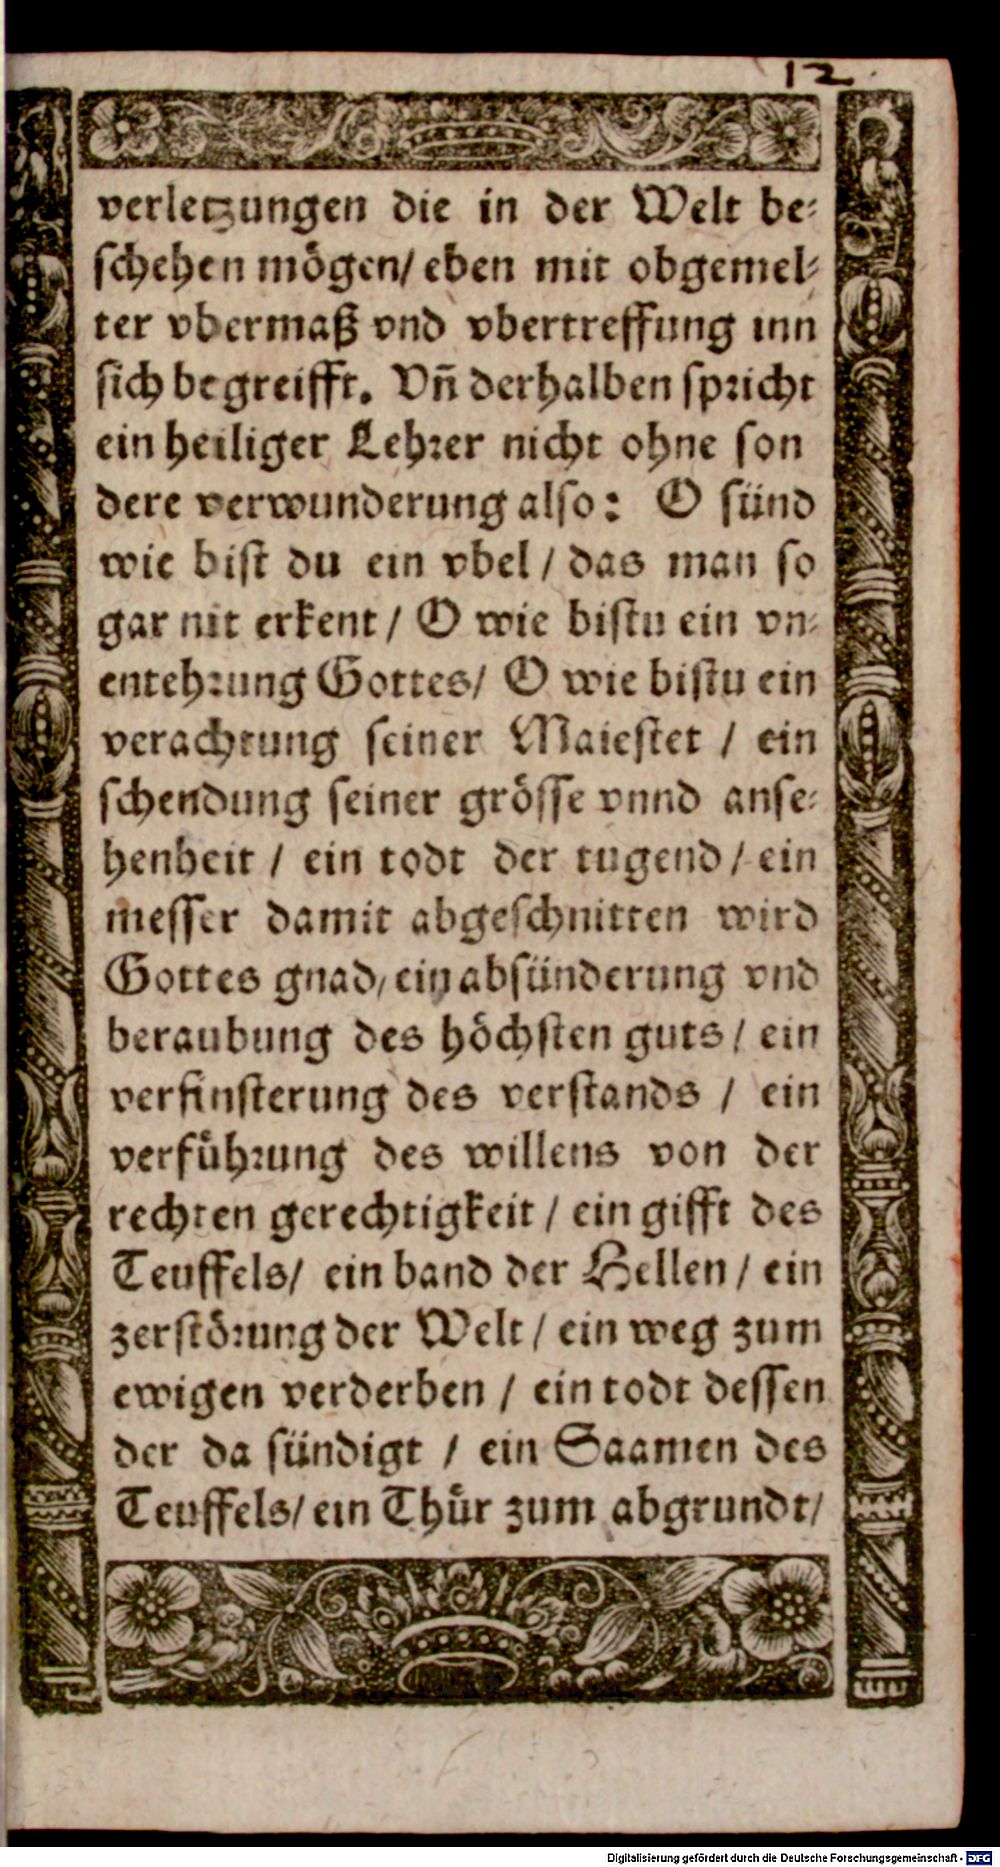 12
verletzungen die in der Welt be⸗
schehen mögen/ eben mit obgemel⸗
ter vbermaß vnd vbertreffung inn
sich begreifft. Vn̄ derhalben spricht
ein heiliger Lehrer nicht ohne son
dere verwunderung also: O sünd
wie bist du ein vbel / das man so
gar nit erkent / O wie bistu ein vn⸗
entehrung Gottes/ O wie bistu ein
verachtung seiner Maiestet / ein
schendung seiner grösse vnnd anse⸗
henheit / ein todt der tugend / ein
messer damit abgeschnitten wird
Gottes gnad, ein absünderung vnd
beraubung des höchsten guts / ein
verfinsterung des verstands / ein
verführung des willens von der
rechten gerechtigkeit / ein gifft des
Teuffels/ ein band der Hellen / ein
zerstörung der Welt / ein weg zum
ewigen verderben / ein todt dessen
der da sündigt / ein Saamen des
Teuffels/ ein Thür zum abgrundt/
Digitalisierung gefördert durch die Deutsche Forschungsgemeinschaft - DFG